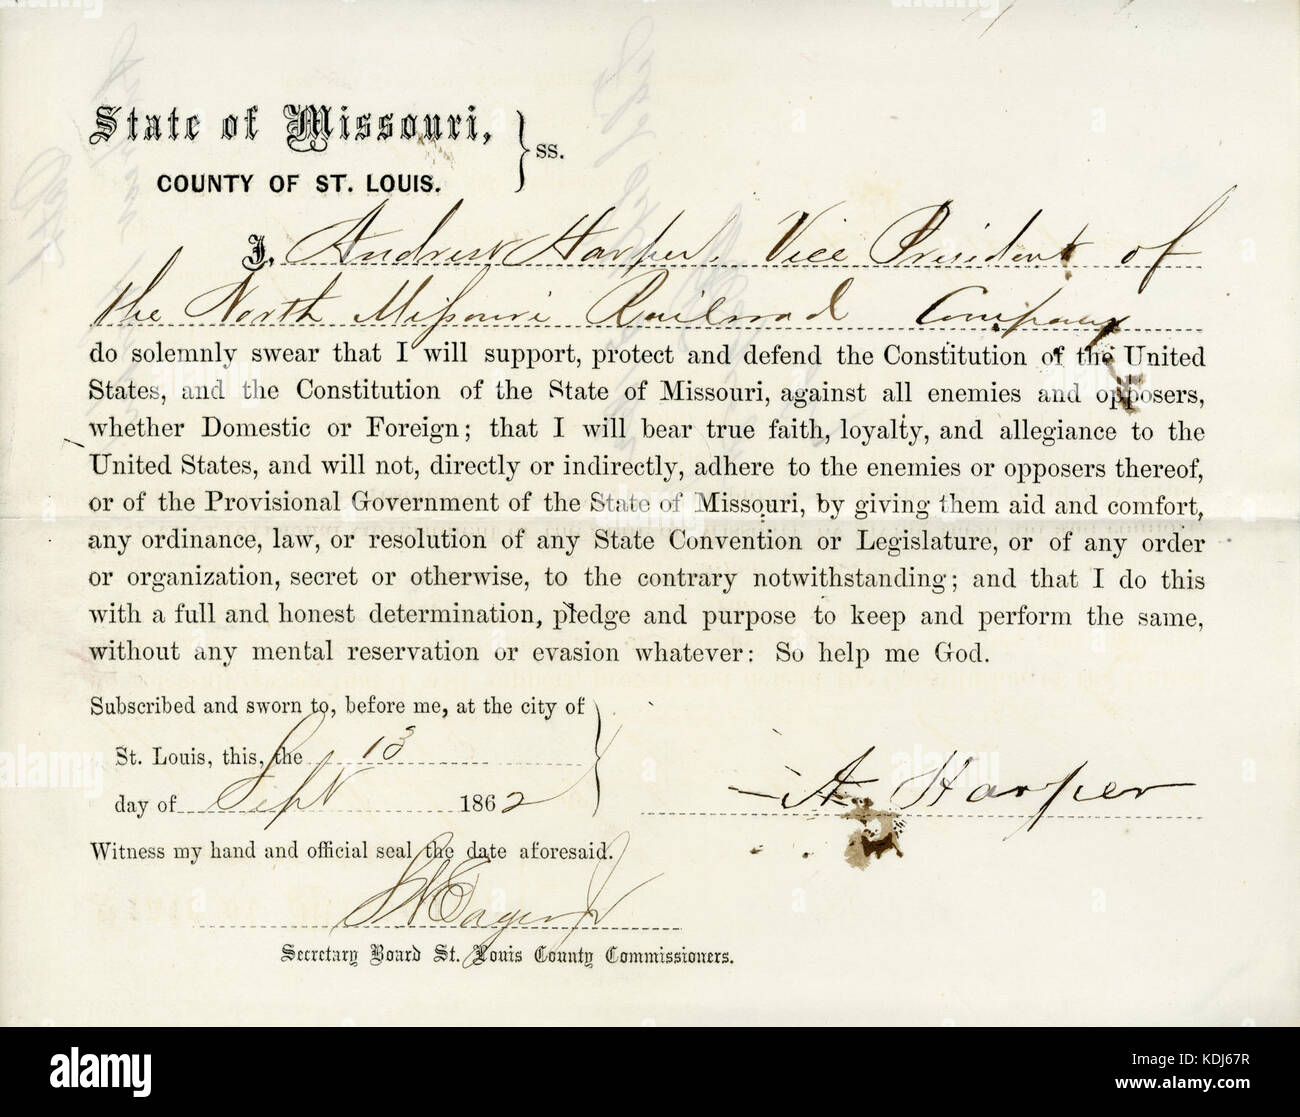 State of Missouri,
COUNTY OF ST. LOUIS. } ss.
I, Andrew Harper, Vice President of
the North Missouri Railroad Company
do solemnly swear that I will support, protect and defend the Constitution of the United
States, and the Constitution of the State of Missouri, against all enemies and opposers,
whether Domestic or Foreign; that I will bear true faith, loyalty, and allegiance to the
United States, and will not, directly or indirectly, adhere to the enemies or opposers thereof,
or of the Provisional Government of the State of Missouri, by giving them aid and comfort,
any ordinance, law, or resolution of any State Convention or Legislature, or of any order
or organization, secret or otherwise, to the contrary notwithstanding; and that I do this
with a full and honest determination, pledge and purpose to keep and perform the same,
without any mental reservation or evasion whatever: So help me God.
Subscribed and sworn to, before me, at the city of
St. Louis, this, the 13
day of Sept 1862
A Harper
Witness my hand and official seal the date aforesaid.
Eager Jr
Secretary Board St. Louis County Commissioners.
alamy
Image ID: KDJ67R
www.alamy.com